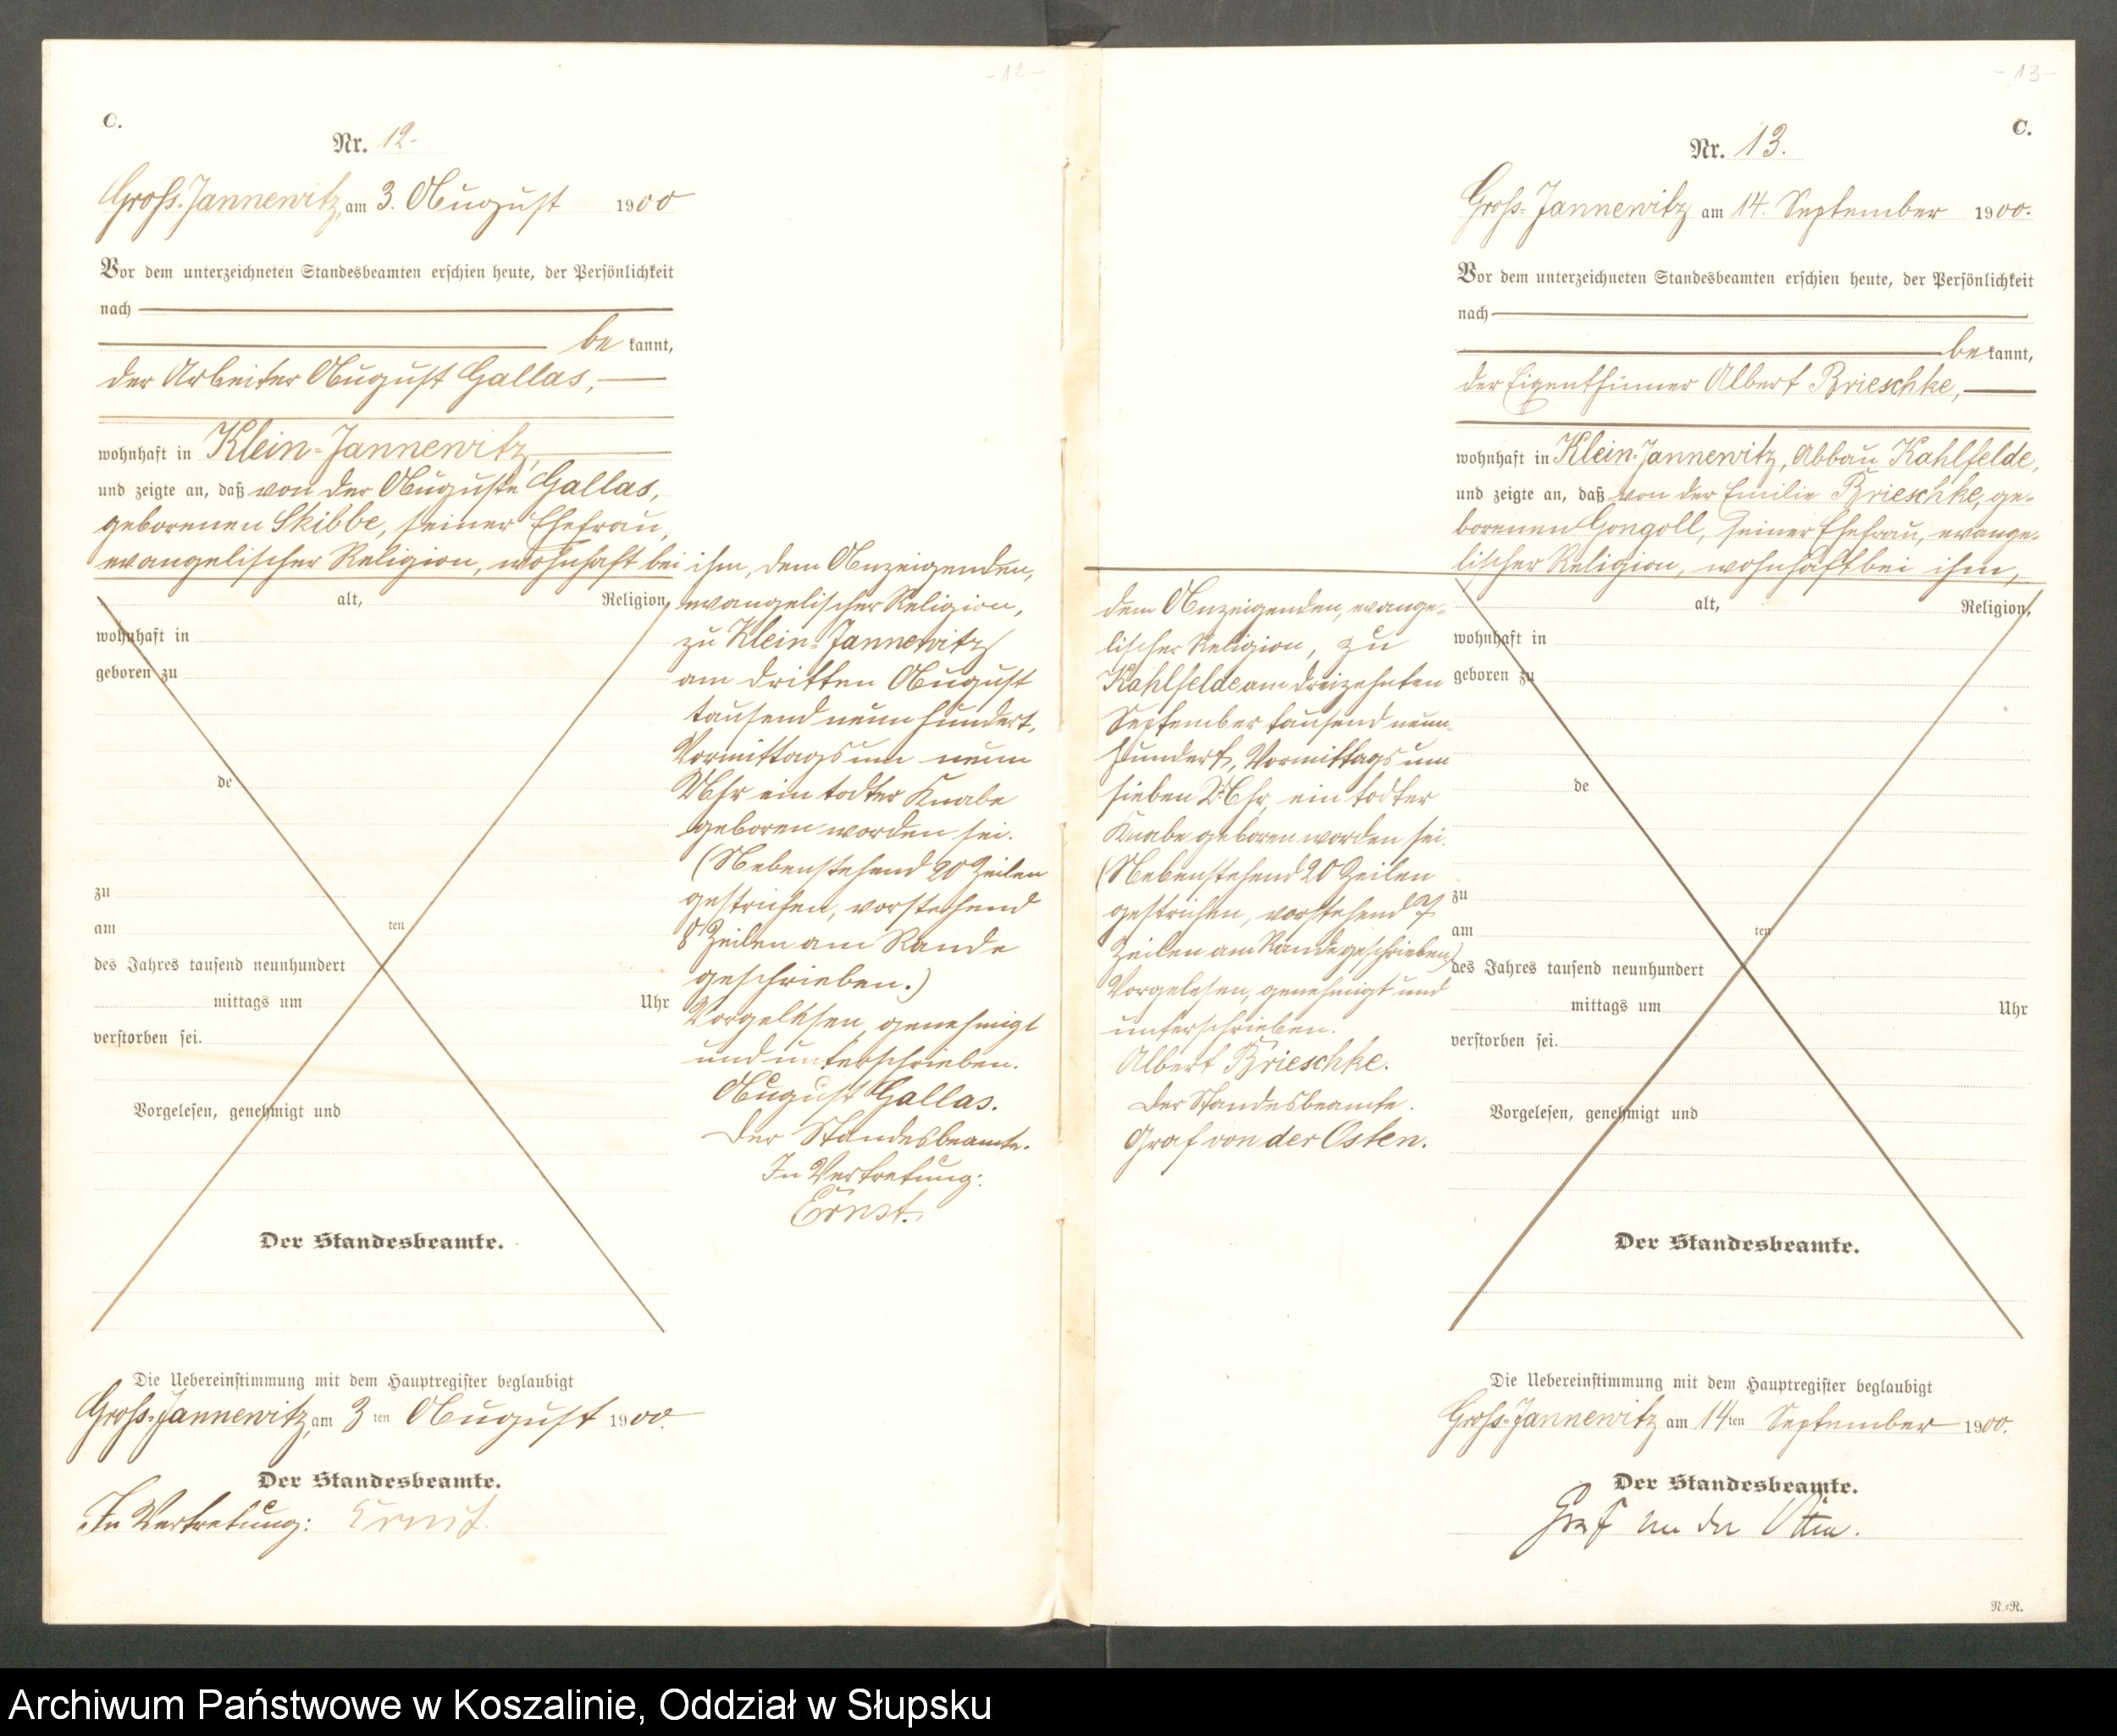 - 12 -
C.
Nr. 12.
Groß-Jannewitz, am 3. August 1900
Vor dem unterzeichneten Standesbeamten erschien heute, der Persönlichkeit
nach
be kannt,
der Arbeiter August Gallas,
wohnhaft in Klein-Jannewitz,
und zeigte an, daß von der Auguste Gallas,
geborenen Skibbe, seiner Ehefrau,
evangelischer Religion, wohnhaft bei ihm, dem Anzeigenden,
evangelischer Religion,
zu Klein-Jannewitz
am dritten August
tausend neunhundert,
Vormittags um neun
Uhr ein todter Knabe
geboren worden sei.
(Nebenstehend 20 Zeilen
gestrichen, vorstehend
8 Zeilen am Rande
geschrieben.)
Vorgelesen, genehmigt
und unterschrieben.
August Gallas.
Der Standesbeamte.
In Vertretung:
Ernst.
alt, Religion,
wohnhaft in
geboren zu
de
zu
am ten
des Jahres tausend neunhundert
mittags um Uhr
verstorben sei.
Vorgelesen, genehmigt und
Der Standesbeamte.
Die Uebereinstimmung mit dem Hauptregister beglaubigt
Groß-Jannewitz, am 3ten August 1900.
Der Standesbeamte.
In Vertretung: Ernst.
- 13 -
C.
Nr. 13.
Groß-Jannewitz am 14. September 1900.
Vor dem unterzeichneten Standesbeamten erschien heute, der Persönlichkeit
nach
be kannt,
der Eigenthümer Albert Brieschke,
wohnhaft in Klein-Jannewitz, Abbau Kahlfelde,
und zeigte an, daß von der Emilie Brieschke, ge-
borenen Gongoll, seiner Ehefrau, evange-
lischer Religion, wohnhaft bei ihm,
dem Anzeigenden, evange-
lischer Religion, zu
Kahlfelde am dreizehnten
September tausend neun-
hundert, Vormittags um
sieben Uhr, ein todter
Knabe geboren worden sei.
(Nebenstehend 20 Zeilen
gestrichen, vorstehend 7
Zeilen am Rande geschrieben)
Vorgelesen, genehmigt und
unterschrieben.
Albert Brieschke.
Der Standesbeamte.
Graf von der Osten.
alt, Religion,
wohnhaft in
geboren zu
de
zu
am ten
des Jahres tausend neunhundert
mittags um Uhr
verstorben sei.
Vorgelesen, genehmigt und
Der Standesbeamte.
Die Uebereinstimmung mit dem Hauptregister beglaubigt
Groß-Jannewitz am 14ten September 1900.
Der Standesbeamte.
Graf von der Osten.
N.-R.
Archiwum Państwowe w Koszalinie, Oddział w Słupsku